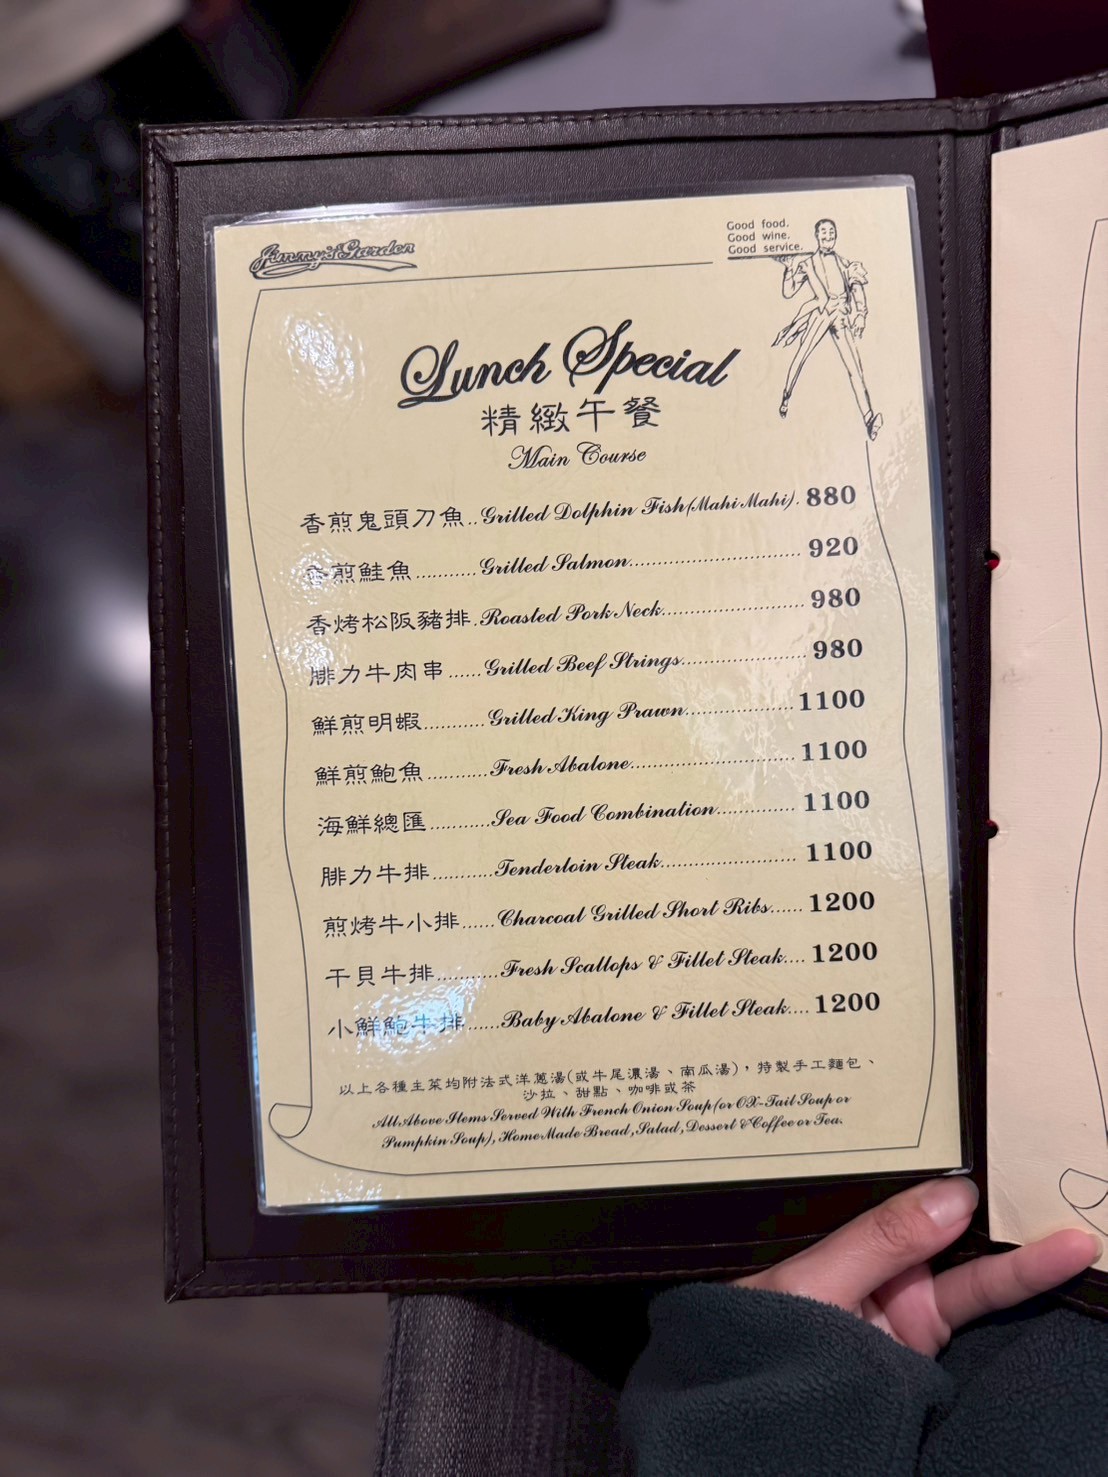 Jimmy's Garden
Good food.
Good wine.
Good service.
Lunch Special
精緻午餐
Main Course
香煎鬼頭刀魚..Grilled Dolphin Fish(Mahi Mahi). 880
香煎鮭魚...........Grilled Salmon............................... 920
香烤松阪豬排.Roasted Pork Neck......................... 980
腓力牛肉串......Grilled Beef Strings...................... 980
鮮煎明蝦...........Grilled King Prawn................... 1100
鮮煎鮑魚...........Fresh Abalone............................. 1100
海鮮總匯...........Sea Food Combination.............. 1100
腓力牛排...........Tenderloin Steak........................ 1100
煎烤牛小排......Charcoal Grilled Short Ribs...... 1200
干貝牛排...........Fresh Scallops & Fillet Steak.... 1200
小鮮鮑牛排......Baby Abalone & Fillet Steak.... 1200
以上各種主菜均附法式洋蔥湯(或牛尾濃湯、南瓜湯)，特製手工麵包、
沙拉、甜點、咖啡或茶
All Above Items Served With French Onion Soup(or OX-Tail Soup or
Pumpkin Soup), Home Made Bread, Salad, Dessert & Coffee or Tea.